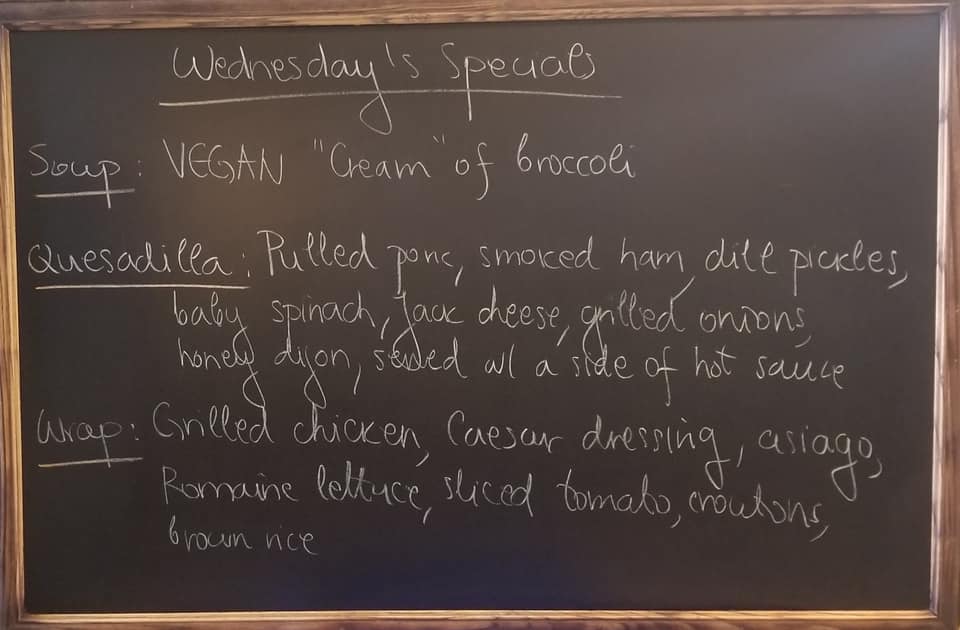 Wednesday's Specials
Soup: VEGAN "Cream" of broccoli
Quesadilla: Pulled pork, smoked ham, dill pickles,
baby spinach, Jack cheese, grilled onions,
honey dijon, served w/ a side of hot sauce
Wrap: Grilled chicken, Caesar dressing, asiago,
Romaine lettuce, sliced tomato, croutons,
brown rice